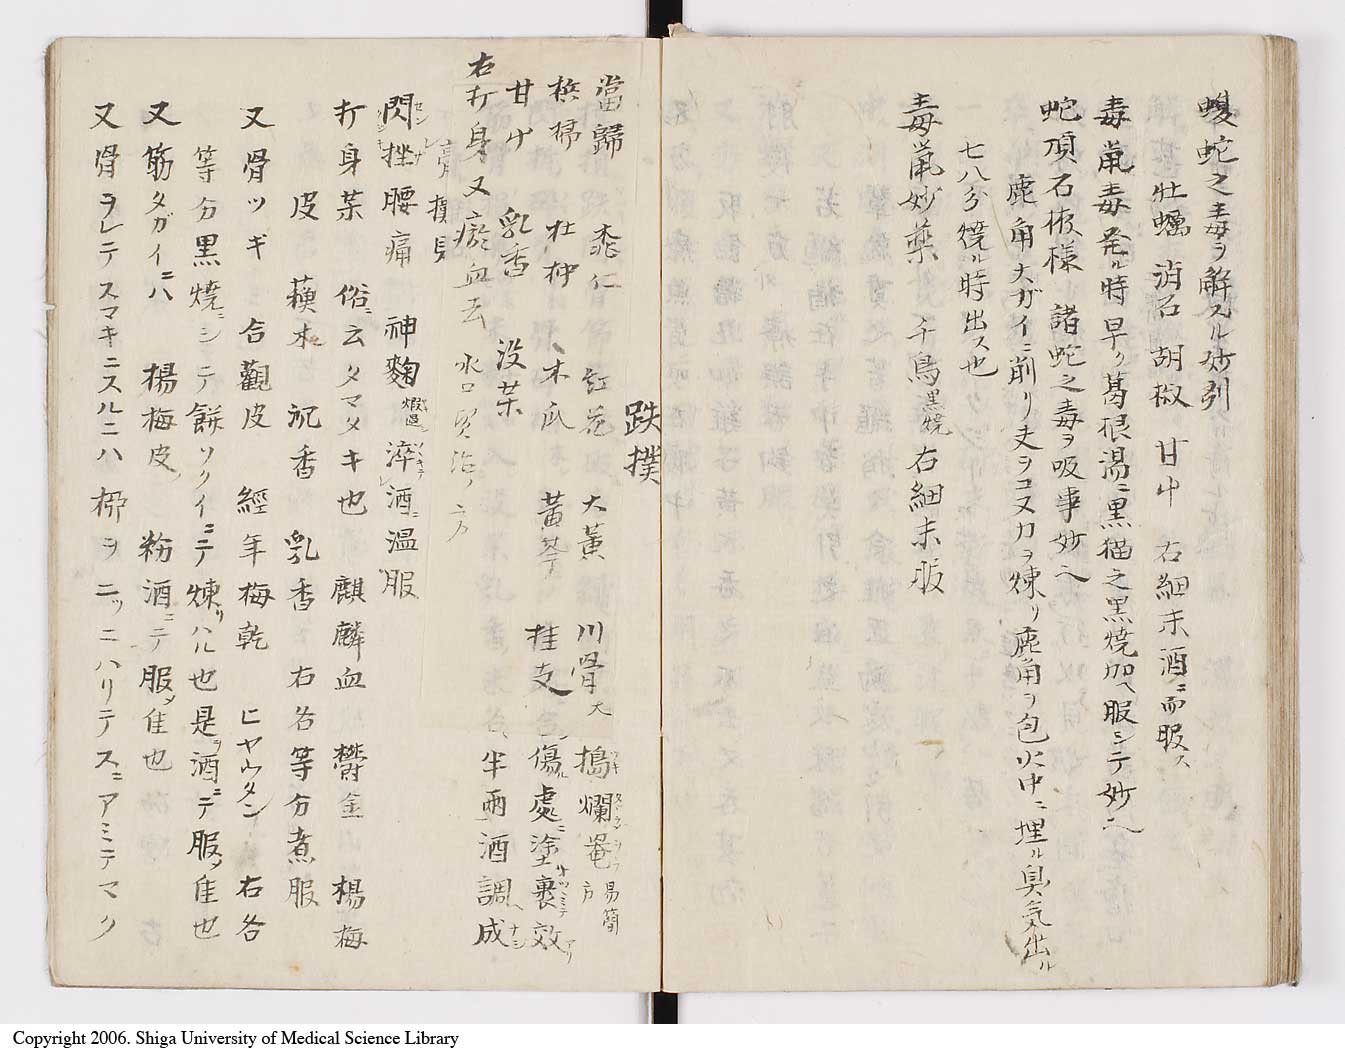 蝮蛇之毒ヲ解スル妙剤
牡蠣 消石 胡椒 甘艸 右細末酒ニ而服ス
毒鼠毒発ル時早ク葛根湯ニ黒猫之黒焼加ヘ服シテ妙ヘ
蛇頂石板様 諸蛇之毒ヲ吸事妙ヘ
鹿角大ガイニ削リ丈ヲコヌカヲ煉リ鹿角ヲ包火中ニ埋ル臭気出ル
七八分焼ル時出ス也
毒鼠妙藥 千鳥黒焼 右細末服
跌撲
當歸 桃仁 紅花 大黃 川骨大 搗爛菴 易簡方
檳榔 杜仲 木瓜 黃芩 桂支 傷處ニ塗裹效アリ
甘艸 乳香 没葉 各半両酒調成
右打身又瘀血去
閃挫腰痛 神麴 淬酒ニ温服
打身葉 俗ニ云タマタキ也 麒麟血 欝金 楊梅
皮 蘓木 沉香 乳香 右各等分煮服
又骨ツギ 合觀皮 經年梅乾 ヒヤウタン 右各
等分黒焼ニシテ餅ソクイニテ煉リハル也是ヲ酒ニテ服メ佳也
又筋タガイニハ 楊梅皮 粉酒ニテ服メ佳也
又骨ヲレテスマキニスルニハ 柳ヲ二ツニハリテスニアミテマク
Copyright 2006. Shiga University of Medical Science Library